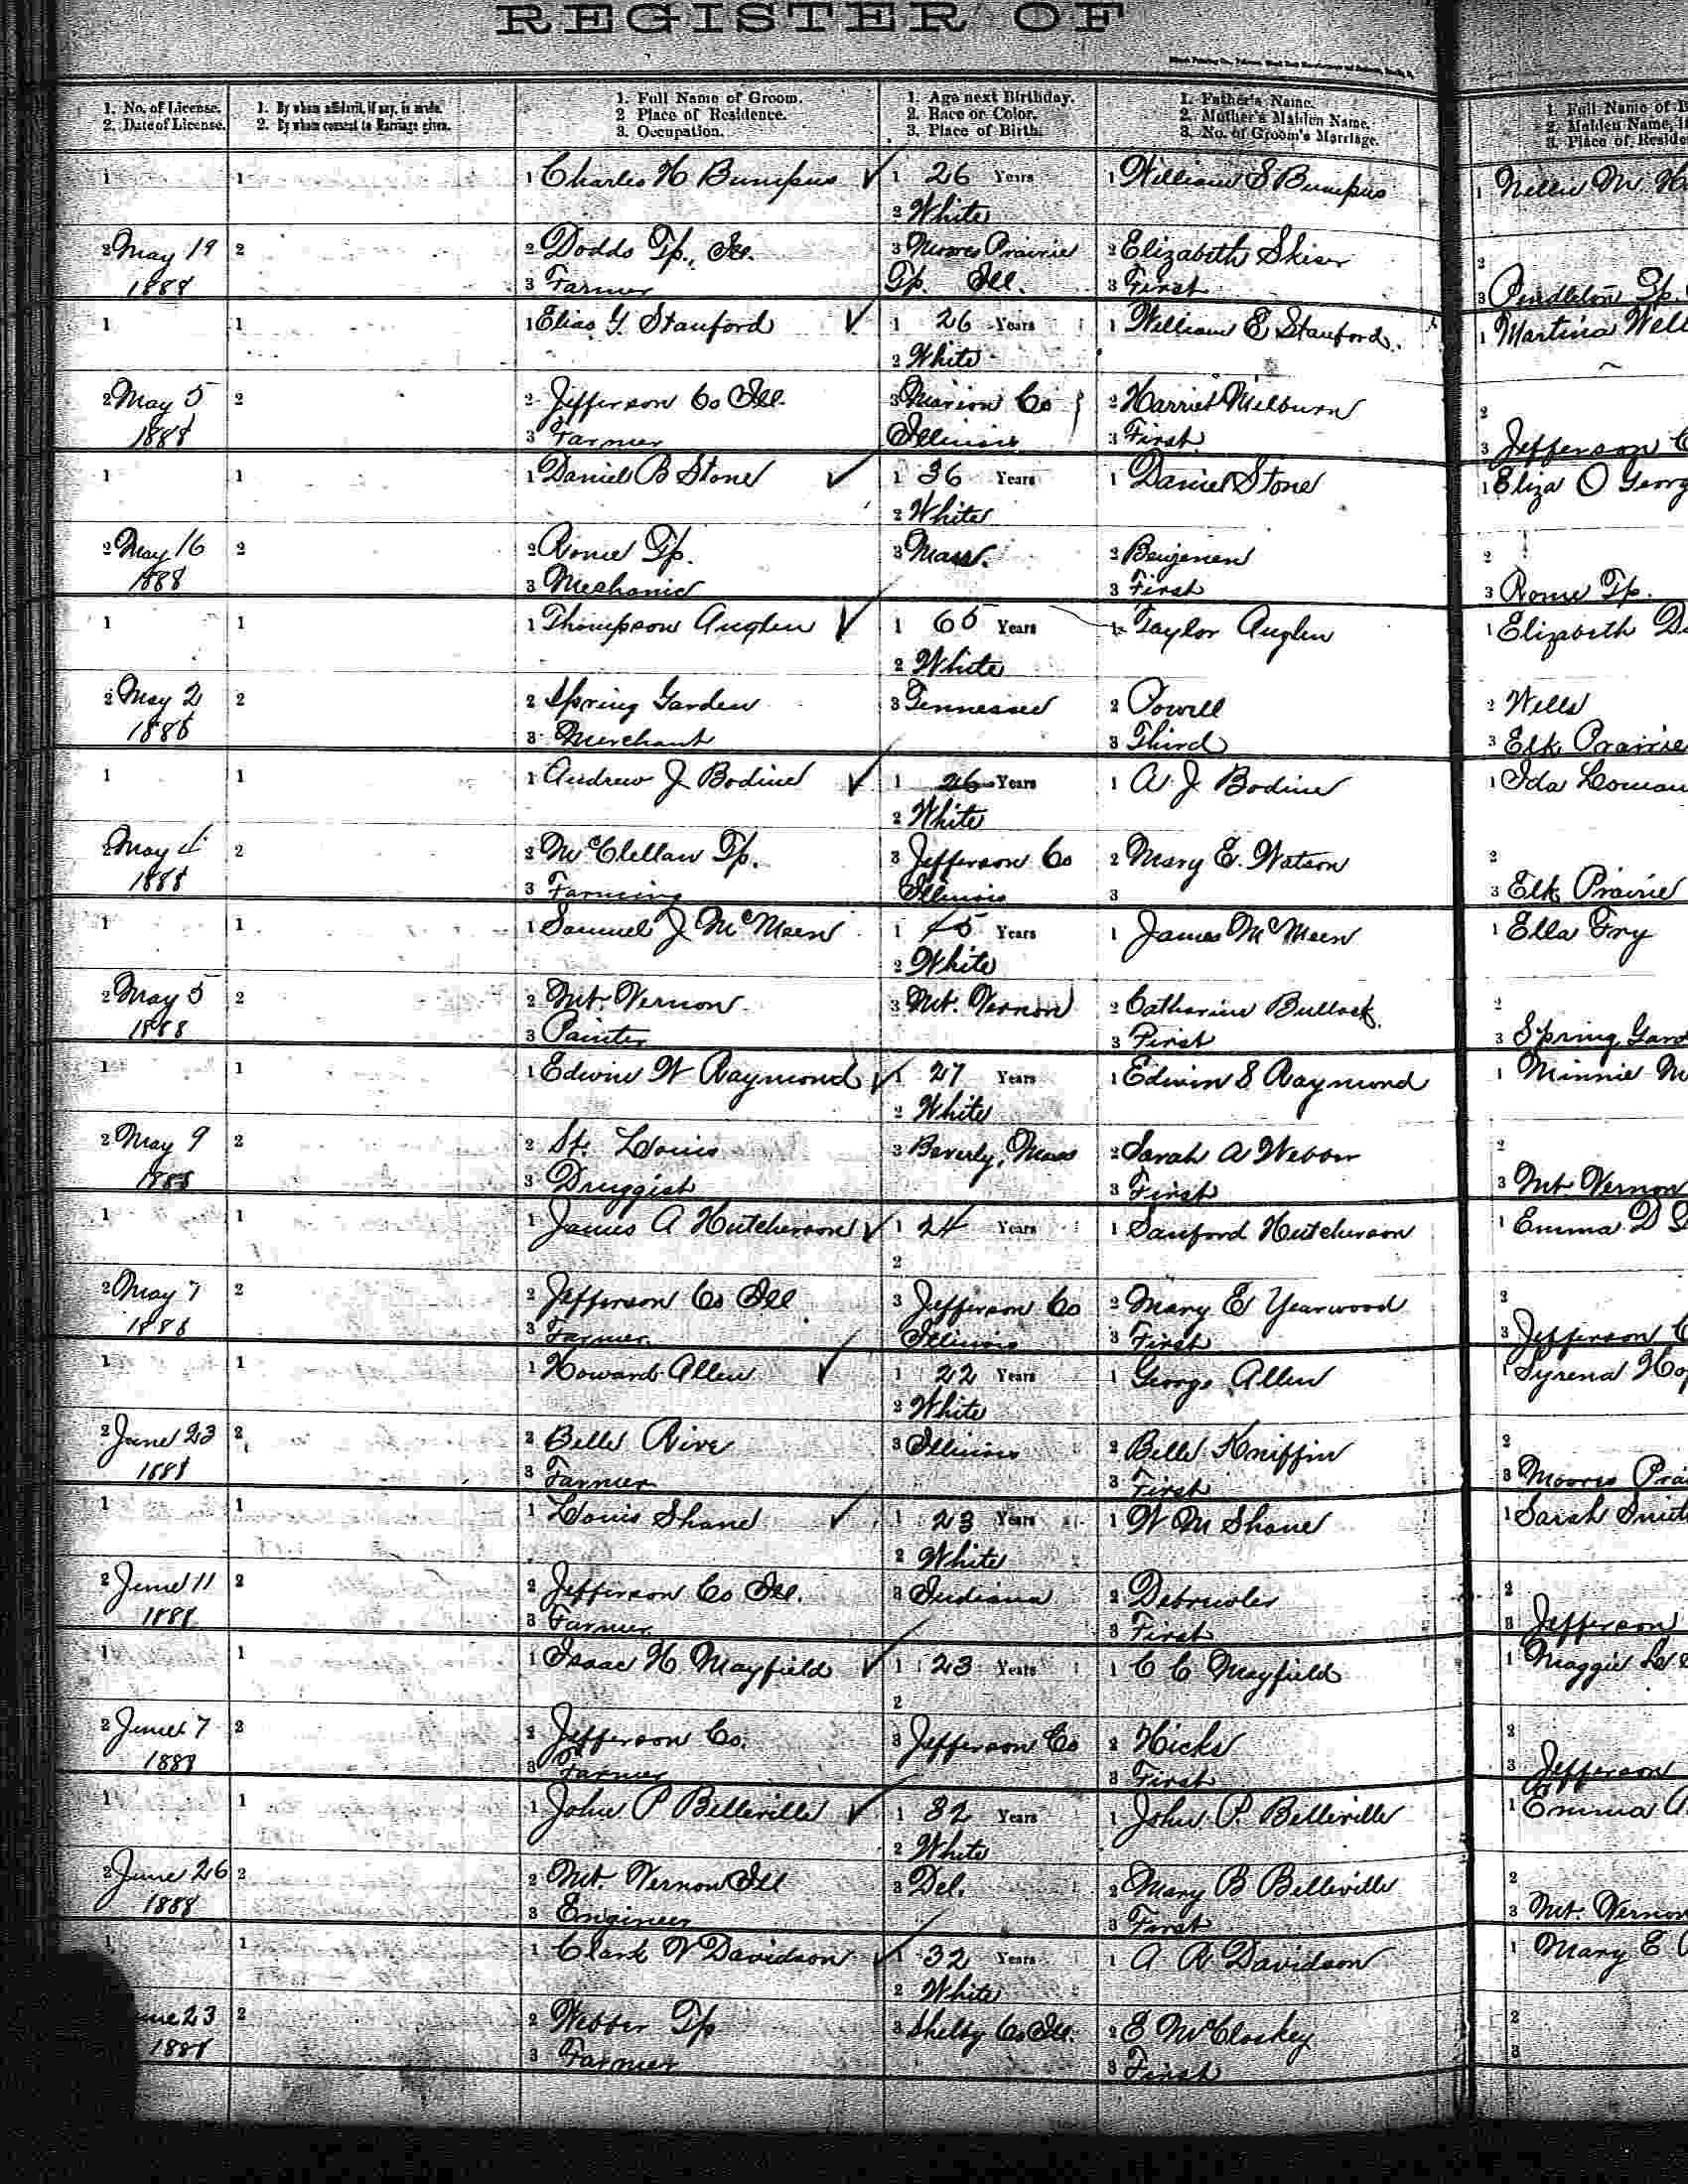 REGISTER OF
1. No. of License.
2. Date of License.
1. By whom affidavit, if any, is made.
2. By whom consent to Marriage given.
1. Full Name of Groom.
2 Place of Residence.
3. Occupation.
1. Age next Birthday.
2. Race or Color.
3. Place of Birth.
1. Father's Name.
2. Mother's Maiden Name.
3. No. of Groom's Marriage.
1. Full Name of
2. Maiden Name,
3. Place of Reside
1 1 1 Charles H Bumpus 1 26 Years 1 William S Bumpus 1 Nellie M
2 White
2 May 19 2 2 Dodds Tp., Ill. 3 Moores Prairie 2 Elizabeth Skiser 2
1888 3 Farmer Tp. Ill. 3 First 3 Pendleton Tp.
1 1 1 Elias G. Stanford 1 26 Years 1 William E Stanford. 1 Martina Well
2 White
2 May 5 2 2 Jefferson Co Ill. 3 Marion Co 2 Harriet Milburn 2
1888 3 Farmer Illinois 3 First 3 Jefferson C
1 1 1 Daniel B Stone 1 36 Years 1 Daniel Stone 1 Eliza O Georg
2 White
2 May 16 2 2 Rome Tp. 3 Mass. 2 Benjenen 2
1888 3 Mechanic 3 First 3 Rome Tp.
1 1 1 Thompson Anglen 1 65 Years 1 Taylor Anglen 1 Elizabeth D
2 White
2 May 2 2 2 Spring Garden 3 Tennessee 2 Powell 2 Wells
1888 3 Merchant 3 Third 3 Elk Prairie
1 1 1 Andrew J Bodine 1 26 Years 1 A J Bodine 1 Ida Loman
2 White
2 May 4 2 2 McClellan Tp. 3 Jefferson Co 2 Mary E. Watson 2
1888 3 Farming Illinois 3 3 Elk Prairie
1 1 1 Samuel J McMeen 1 45 Years 1 James McMeen 1 Ella Fry
2 White
2 May 5 2 2 Mt. Vernon 3 Mt. Vernon 2 Catharine Bullock 2
1888 3 Painter 3 First 3 Spring Gard
1 1 1 Edwin W Raymond 1 27 Years 1 Edwin S Raymond 1 Minnie M
2 White
2 May 9 2 2 St. Louis 3 Beverly, Mass 2 Sarah A Webber 2
1888 3 Druggist 3 First 3 Mt Vernon
1 1 1 James A Hutcherson 1 24 Years 1 Sanford Hutcherson 1 Emma D
2
2 May 7 2 2 Jefferson Co Ill 3 Jefferson Co 2 Mary E Yearwood 2
1888 3 Farmer Illinois 3 First 3 Jefferson C
1 1 1 Howard Allen 1 22 Years 1 George Allen 1 Syrena Hop
2 White
2 June 23 2 2 Belle Rive 3 Illinois 2 Belle Kniffin 2
1888 3 Farmer 3 First 3 Moores Prai
1 1 1 Louis Shane 1 23 Years 1 W M Shane 1 Sarah Smit
2 White
2 June 11 2 2 Jefferson Co Ill. 3 Indiana 2 Debruler 2
1888 3 Farmer 3 First 3 Jefferson
1 1 1 Isaac H Mayfield 1 23 Years 1 C C Mayfield 1 Maggie
2
2 June 7 2 2 Jefferson Co. 3 Jefferson Co 2 Hicks 2
1888 3 Farmer 3 First 3 Jefferson
1 1 1 John P Belleville 1 32 Years 1 John P. Belleville 1 Emma A.
2 White
2 June 26 2 2 Mt. Vernon Ill 3 Del. 2 Mary B Belleville 2
1888 3 Engineer 3 First 3 Mt. Vernon
1 1 1 Clark W Davidson 1 32 Years 1 A A Davidson 1 Mary E
2 White
une 23 2 2 Webber Tp 3 Shelby Co Ill. 2 E McCloskey 2
1888 3 Farmer 3 First 3